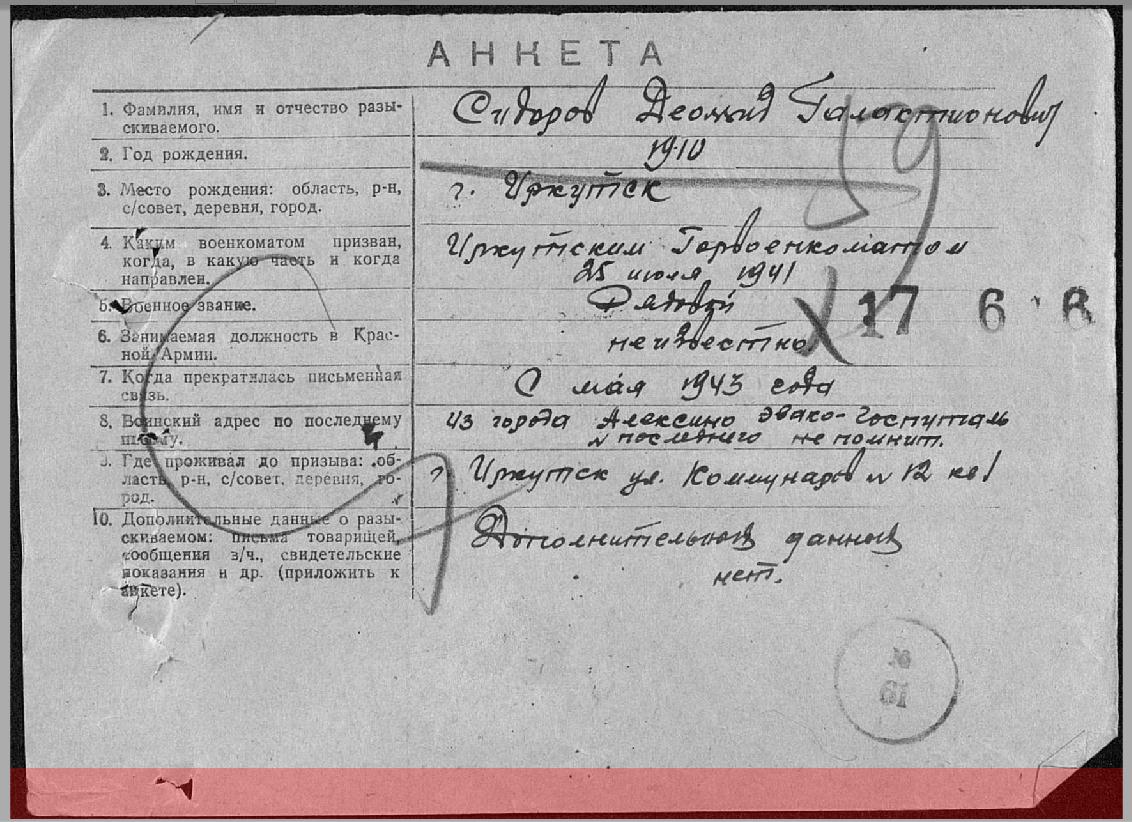 АНКЕТА
1. Фамилия, имя и отчество разы-
скиваемого.
Сидоров Леонид Галактионович
2. Год рождения.
1910
3. Место рождения: область, р-н,
с/совет, деревня, город.
г. Иркутск
4. Каким военкоматом призван,
когда, в какую часть и когда
направлен.
Иркутским Горвоенкоматом
25 июля 1941
5. Военное звание.
Рядовой
17 6
6. Занимаемая должность в Крас-
ной Армии.
неизвестно
7. Когда прекратилась письменная
связь.
С мая 1943 года
8. Воинский адрес по последнему
письму.
из города Алексино Эвако-госпиталь
№ последнего не помнит.
9. Где проживал до призыва: об-
ласть, р-н, с/совет, деревня, го-
род.
г Иркутск ул. Коммунаров № 12 кв 1
10. Дополнительные данные о разы-
скиваемом: письма товарищей,
сообщения з/ч., свидетельские
показания и др. (приложить к
анкете).
Дополнительных данных
нет.
№
19